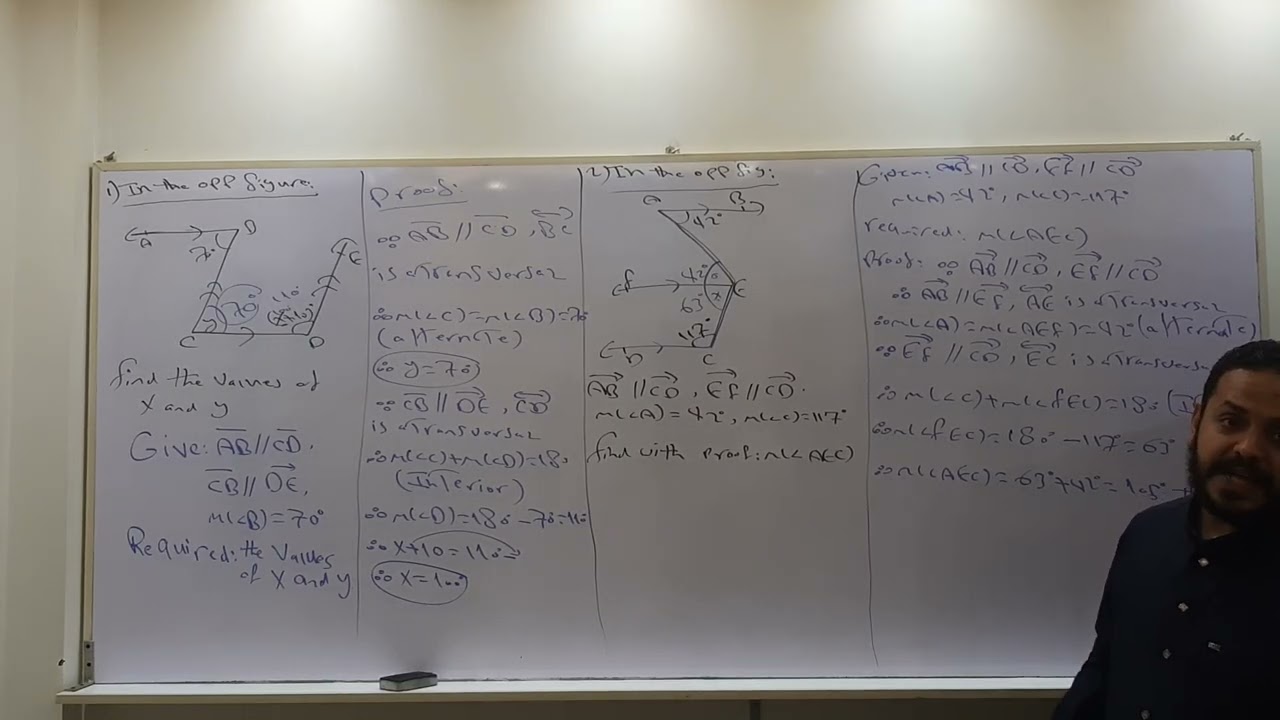 1) In the opp figure:
A
B
70°
E
70°
110°
(X+10)°
C
D
find the values of
X and y
Give: AB // CD,
CB // DE,
m(<B) = 70°
Required: the values
of X and y
Proof:
∵ AB // CD, BC
is a Transversal
∴ m(<C) = m(<B) = 70
(alternate)
∴ y = 70
∵ CB // DE, CD
is a Transversal
∴ m(<C) + m(<D) = 180
(Interior)
∴ m(<D) = 180 - 70 = 110
∴ X+10 = 110
∴ X = 100
2) In the opp fig:
A
B
42°
42°
F
E
X
63°
117°
D
C
AB // CD, EF // CD.
m(<A) = 42°, m(<C) = 117°
find with Proof: m(<AEC)
Given: AB // CD, EF // CD
m(A) = 42°, m(<C) = 117°
required: m(<AEC)
Proof: ∵ AB // CD, EF // CD
∴ AB // EF, AE is a Transversal
∴ m(<A) = m(AEF) = 42° (alternate)
∵ EF // CD, EC is a Transversal
∴ m(<C) + m(<FEC) = 180
∴ m(<FEC) = 180 - 117° = 63°
∴ m(<AEC) = 63° + 42° = 105°